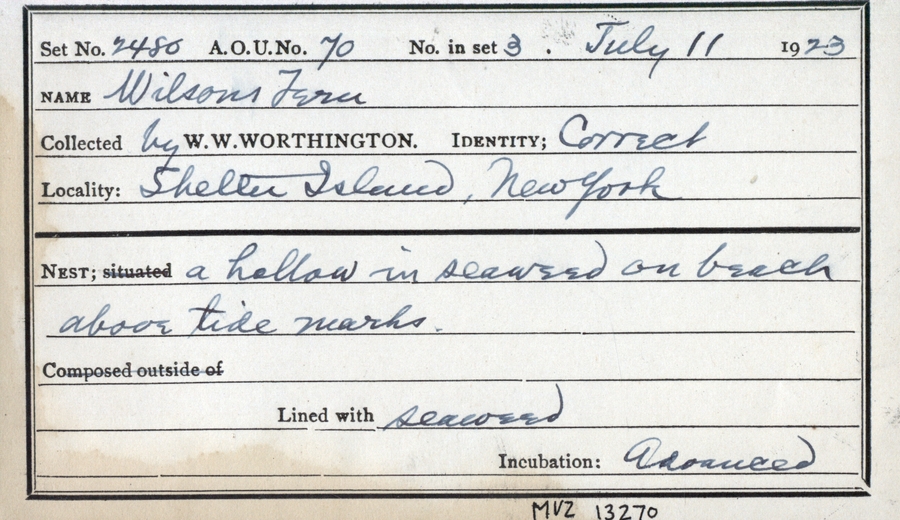 Set No. 2480 A.O.U.No. 70 No. in set 3 . July 11 1923
NAME Wilsons Tern
Collected by W.W.WORTHINGTON. IDENTITY; Correct
Locality: Shelter Island, New York
NEST; situated a hollow in seaweed on beach
above tide marks.
Composed outside of
Lined with seaweed
Incubation: Advanced
MVZ 13270